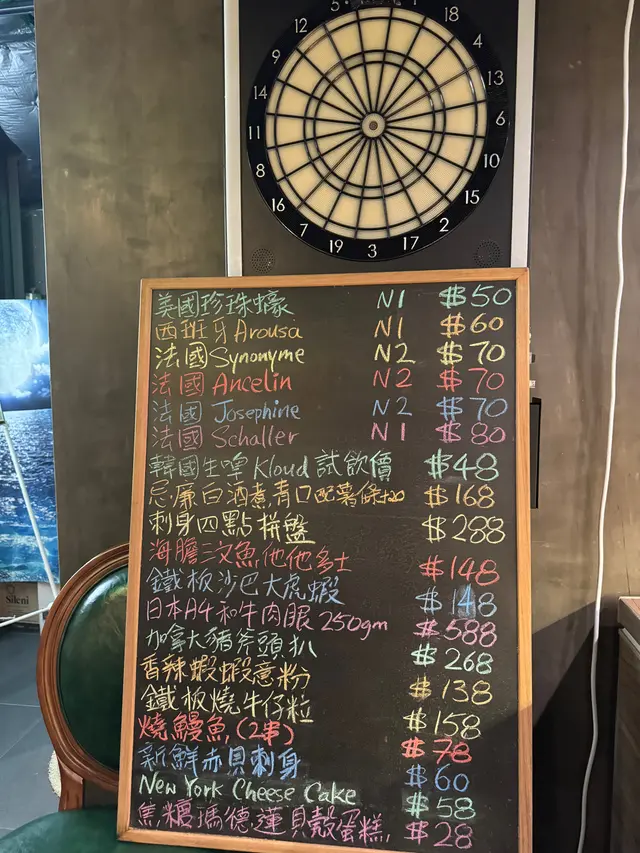 5
12
18
9
4
14
13
11
6
8
10
16
15
7
2
19
17
3
美國珍珠蠔 N1 $50
西班牙Arousa N1 $60
法國Synonyme N2 $70
法國Ancelin N2 $70
法國Josephine N2 $70
法國Schaller N1 $80
韓國生啤Kloud試飲價 $48
忌廉白酒煮青口配薯條+20 $168
刺身四點拼盤 $288
海膽三文魚他他多士 $148
鐵板沙巴大虎蝦 $148
日本A4和牛肉眼250gm $588
加拿大豬斧頭扒 $268
香辣蝦蝦意粉 $138
鐵板燒牛仔粒 $158
燒鰻魚(2串) $78
新鮮赤貝刺身 $60
New York Cheese Cake $58
焦糖瑪德蓮貝殼蛋糕 $28
Sileni